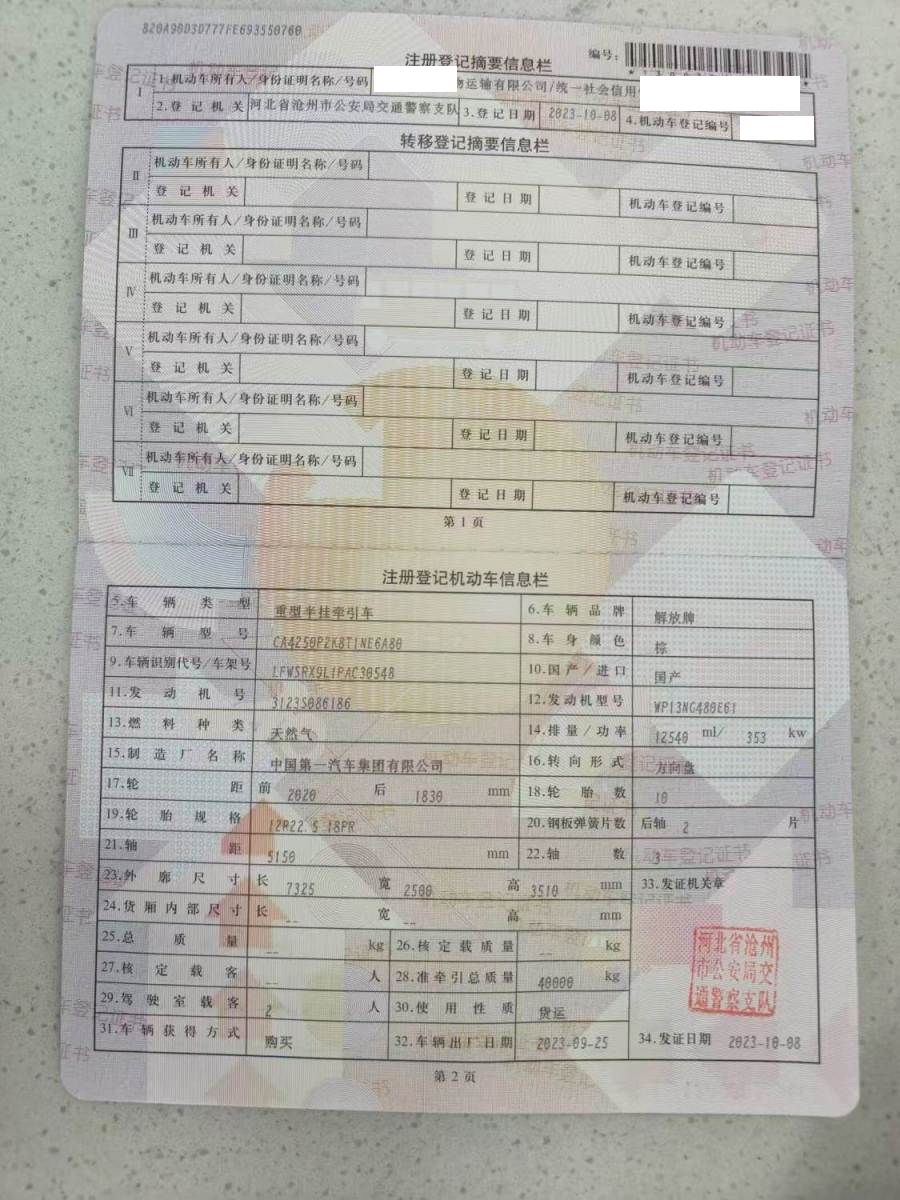 820A90D3D777FE693550760
注册登记摘要信息栏
编号:
I
1.机动车所有人/身份证明名称/号码 物运输有限公司/统一社会信用
2.登记机关 河北省沧州市公安局交通警察支队 3.登记日期 2023-10-08 4.机动车登记编号
转移登记摘要信息栏
II
机动车所有人/身份证明名称/号码
登记机关 登记日期 机动车登记编号
III
机动车所有人/身份证明名称/号码
登记机关 登记日期 机动车登记编号
IV
机动车所有人/身份证明名称/号码
登记机关 登记日期 机动车登记编号
V
机动车所有人/身份证明名称/号码
登记机关 登记日期 机动车登记编号
VI
机动车所有人/身份证明名称/号码
登记机关 登记日期 机动车登记编号
VII
机动车所有人/身份证明名称/号码
登记机关 登记日期 机动车登记编号
第1页
注册登记机动车信息栏
5.车辆类型 重型半挂牵引车 6.车辆品牌 解放牌
7.车辆型号 CA4250P2K8T1NE6A80 8.车身颜色 棕
9.车辆识别代号/车架号 LFWSRX9L1PAC30548 10.国产/进口 国产
11.发动机号 3123S086186 12.发动机型号 WP13NG480E61
13.燃料种类 天然气 14.排量/功率 12540 ml/ 353 kw
15.制造厂名称 中国第一汽车集团有限公司 16.转向形式 方向盘
17.轮距 前 2020 后 1830 mm 18.轮胎数 10
19.轮胎规格 12R22.5 18PR 20.钢板弹簧片数 后轴 2 片
21.轴距 5150 mm 22.轴数 3
23.外廓尺寸 长 7325 宽 2500 高 3510 mm 33.发证机关章
24.货厢内部尺寸 长 -- 宽 -- 高 -- mm
25.总质量 -- kg 26.核定载质量 -- kg
27.核定载客 -- 人 28.准牵引总质量 40000 kg
29.驾驶室载客 2 人 30.使用性质 货运
31.车辆获得方式 购买 32.车辆出厂日期 2023-09-25 34.发证日期 2023-10-08
河北省沧州
市公安局交
通警察支队
第2页